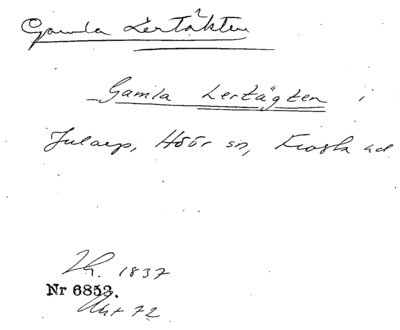 Gamla Lertäkten
Gamla Lertägten i
Julaup, Höör sn, Frosta hd
Lh. 1837
Nr 6853.
Akt 72